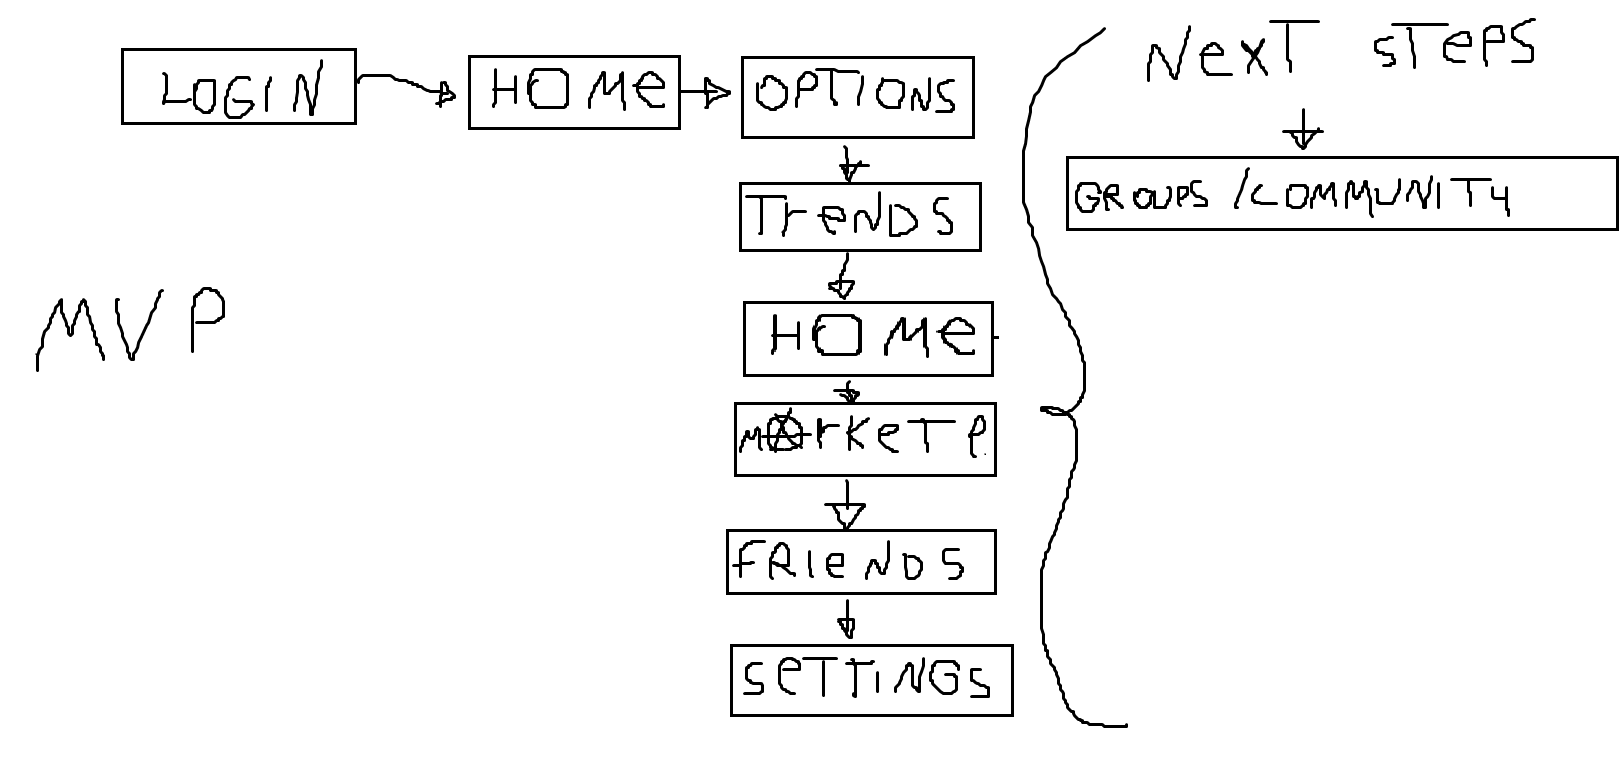 LOGIN
HOMe
OPTIONS
TreNDS
HOMe
MArKeTP.
MVP
FRIeNDS
SeTTINGS
NexT STePS
GROUPS/COMMUNITY